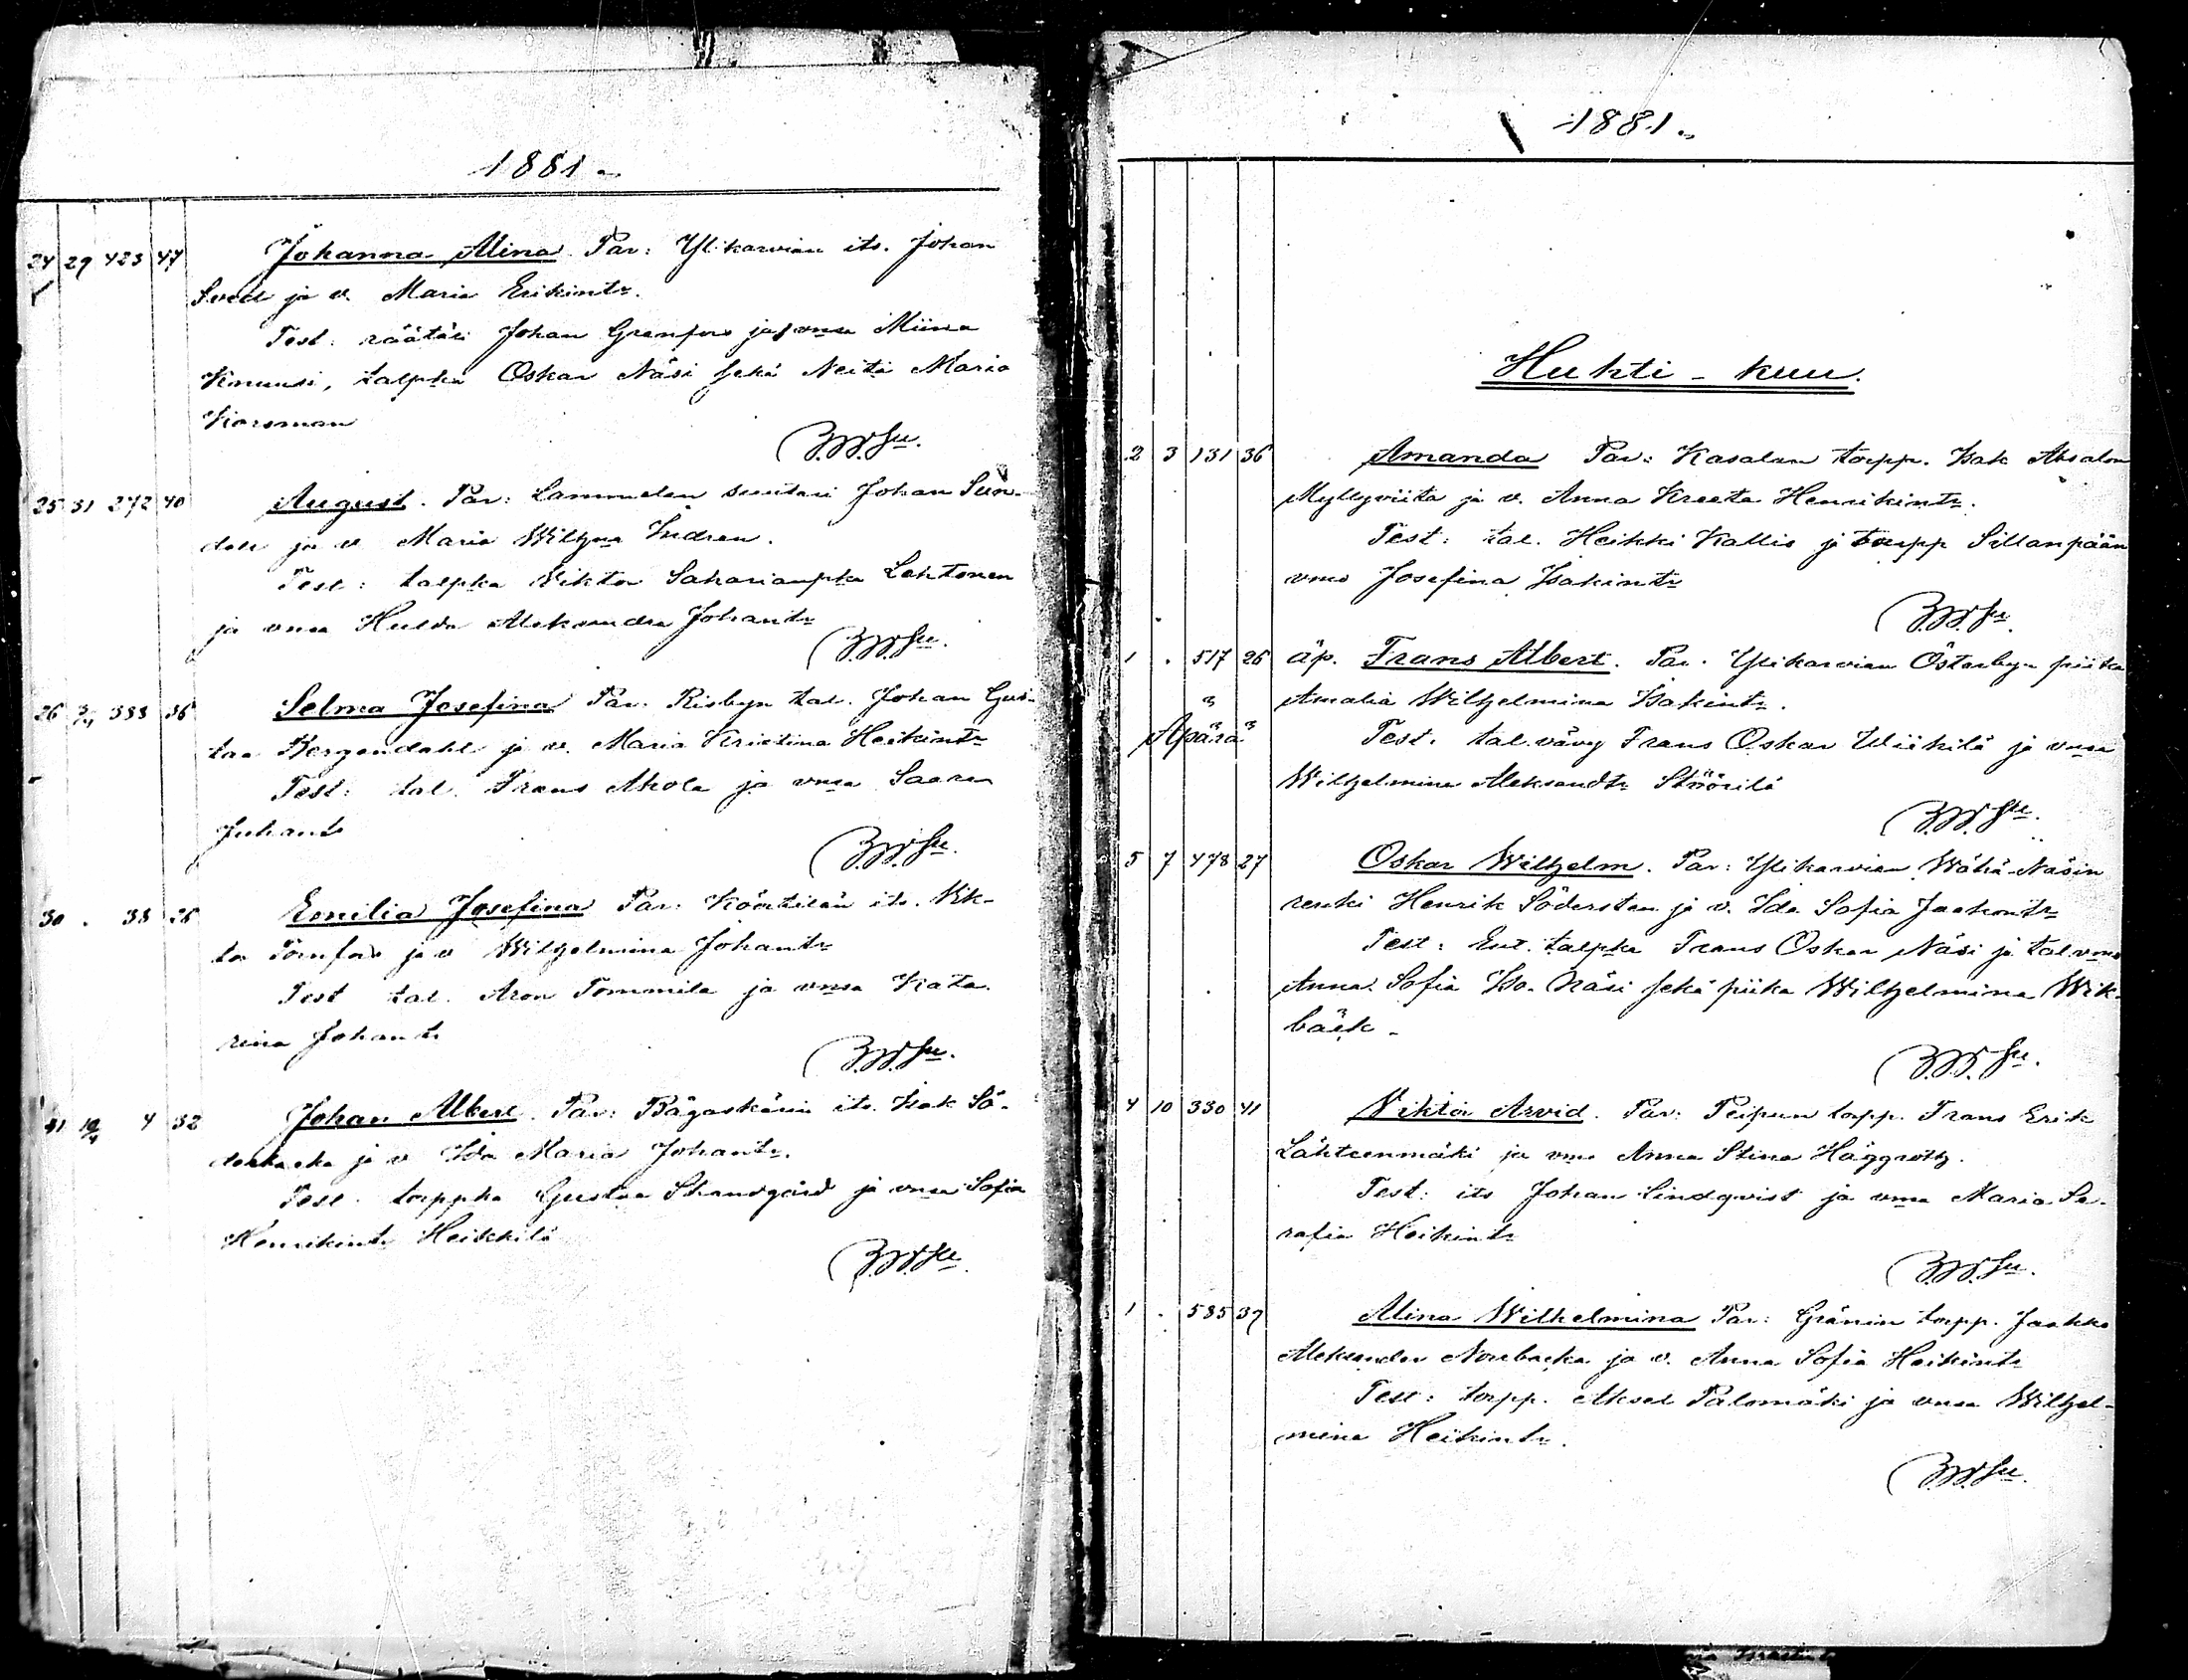 1881.
24 29 423 47 Johanna Alina. Par: Ylikarvian its. Johan
Sved ja v. Maria Erikint.
Test: räätäli Johan Granfors ja vmsa Miina
Knuusi, talpka Oskar Näsi sekä Neiti Maria
Korsman
25 31 272 40 August. Par: Lammelan suutari Johan Sun-
ja v. Maria Wilhma
Test: talpka Viktor Lehtonen
ja vmsa Hulda Aleksandra Johant.
26 3/4 388 36 Selma Josefina Par: Risbyn tal. Johan Gus-
taa Bergendahl ja v. Maria Kristina Heikint.
Test: tal. Frans Ahola ja vmsa Saara
Juhant
30 . 38 26 Emilia Josefina Par: Köörtilän its. Vik-
tor Törnfors ja v Wilhelmina Johant.
Test tal. Aron Tommila ja vmsa Kata-
rina Johant.
31 10/4 4 32 Johan Albert. Par: Bågaskärin its. Isak Sö-
derbacka ja v. Ida Maria Johant.
Test. torppka Gustaa Strandgård ja vmsa Sofia
Henrikint. Heikkilä
1881.
Huhti-kuu.
2 3 131 36 Amanda Par: Kasalan torpp. Isak Absalon
Myllyviita ja v. Anna Kreeta Henrikint.
Test: tal. Heikki Kallis ja torpp Sillanpään
vmo Josefina Isakint.
1 . 517 26 äp. Frans Albert. Par. Ylikarvian Österbyn piika
Äpärä
Amalia Wilhelmina Isakint.
Test. tal. vävy Frans Oskar Wiikilä ja vmsa
Wilhelmina Aleksandt. Stöörilä
5 7 478 27 Oskar Wilhelm. Par: Ylikarvian Wähä-Näsin
renki Henrik Södersten ja v. Ida Sofia Jaakont.
Test: Ent. talpka Frans Oskar Näsi ja tal. vmo
Anna Sofia Iso-Näsi sekä piika Wilhelmina Wik-
bäck.
4 10 330 41 Viktor Arvid. Par: Peipun torpp. Frans Erik
Lähteenmäki ja vmo Anna Stina Häggroth.
Test: its Johan Lindqvist ja vmsa Maria Se-
rafia Heikint.
1 . 585 37 Alina Wilhelmina Par: Gränin torpp. Jaakko
Aleksander Norrbacka ja v. Anna Sofia Heikint.
Test: torpp. Aksel Palomäki ja vmsa Wilhel-
mina Heikint.